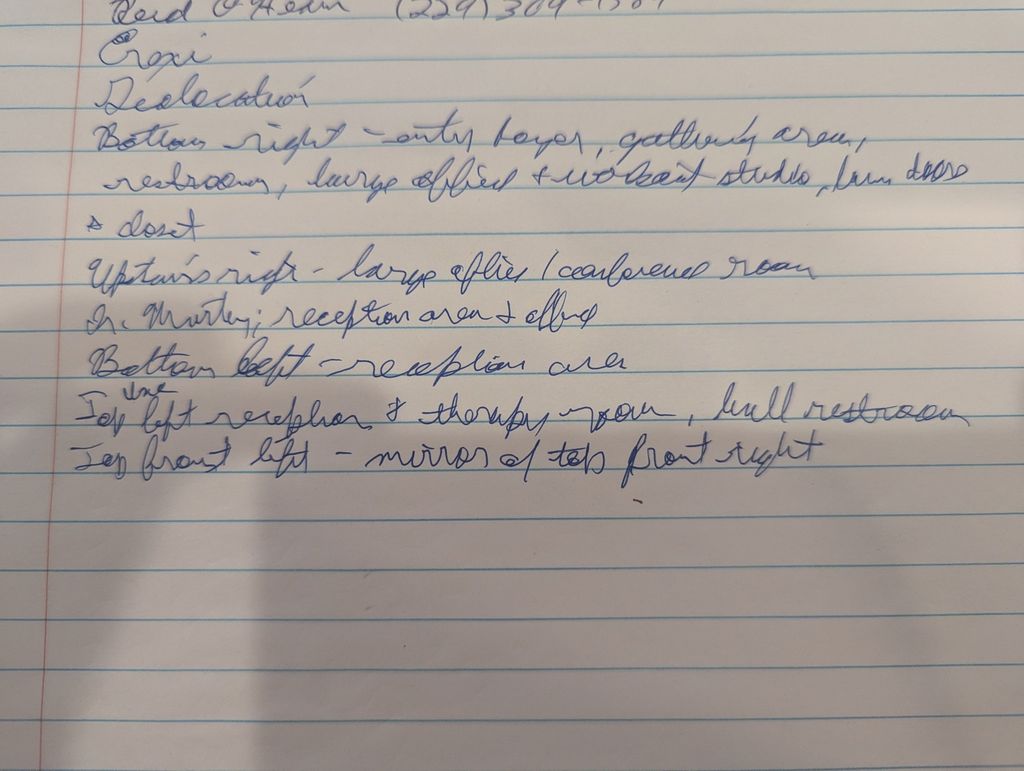 (229) 309-
Bottom right - entry foyer, gathering area,
restroom, large office + workout studio, barn doors
+ closet
Upstairs right - large office / conference room
Dr. reception area + office
Bottom left - reception area
Top left reception & therapy room, hall restroom
Top front left - mirror of top front right